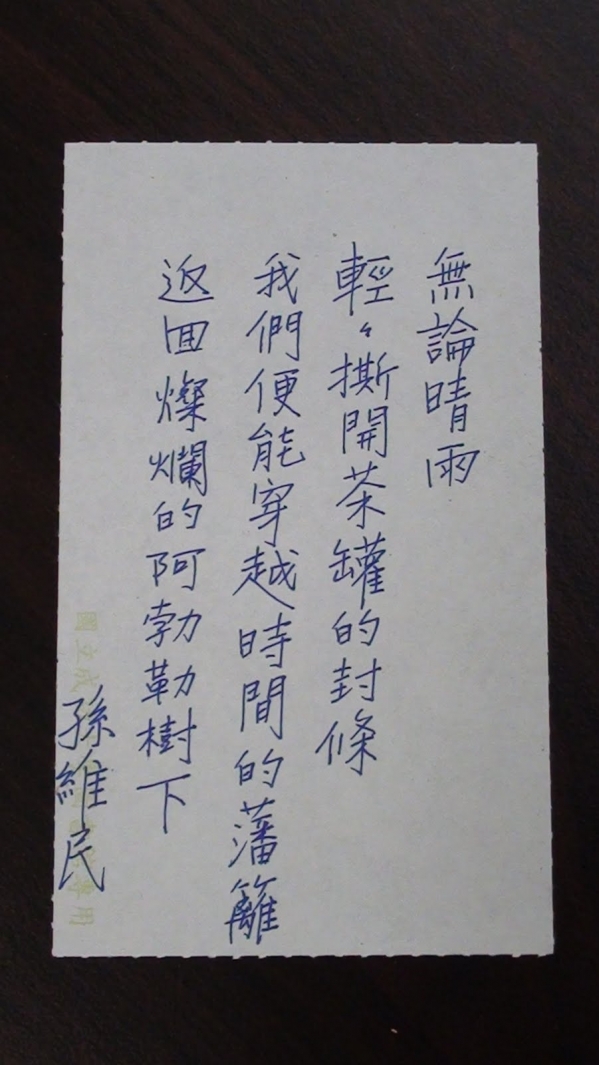 無論晴雨
輕々撕開茶罐的封條
我們便能穿越時間的藩籬
返回燦爛的阿勃勒樹下
孫維民
國立成
專用